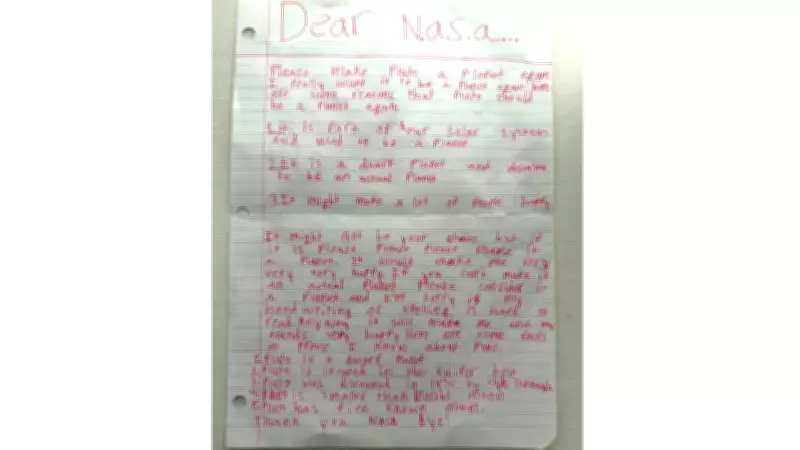 Dear N.a.s.a....
Please make Pluto a Planet again
I really want it to be a Planet again here
are some reasons that Pluto should
be a Planet again
1 It is Part of our Solar System
and used to be a Planet
2 It is a dwarf Planet and
to be an actual Planet
3 It might make a lot of People happy
It might not be your but if
it is Please Please Please Please make it
a Planet It would make me very
very very happy If you can't make it
an actual Planet Please consider it
a Planet and I'm sorry if my
hand writing or spelling is hard to
read Anyway it will make me and my
friends very happy here are some facts
I know about Pluto
1. Pluto is a dwarf Planet
2. Pluto is located in the Kuiper Belt
3. Pluto was discovered in 1930 by Clyde Tombaugh
4. Pluto is smaller than
5. Pluto has five known moons
Thank you Nasa bye